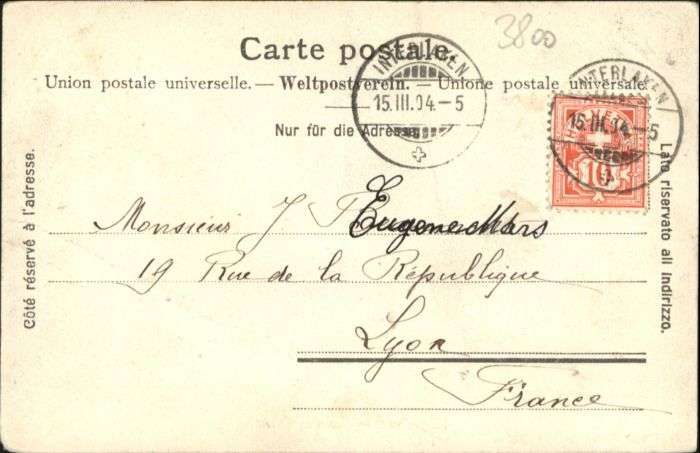 3800
Carte postale.
Union postale universelle. — Weltpostverein. — Unione postale universale
Nur für die Adresse
INTERLAKEN
15.III.04.-5
INTERLAKEN
15.III.04.-5
10
Côté réservé à l'adresse.
Lato riservato all indirizzo.
Monsieur J Eugene Mars
19 Rue de la République
Lyon
France